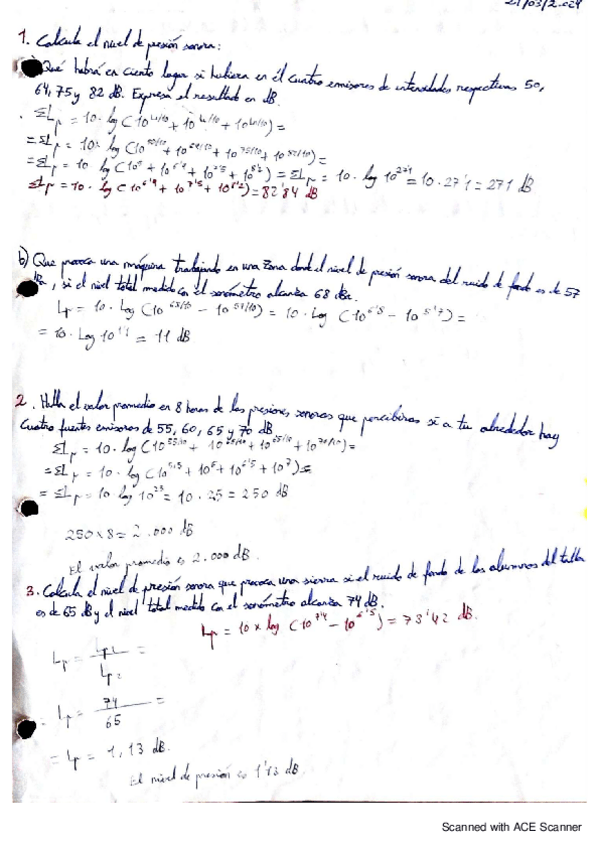 21/03/2024
1. Calcula el nivel de presión sonora:
a) Qué habrá en cierto lugar si hubiera en él cuatro emisores de intensidades respectivas 50,
64, 75 y 82 dB. Expresa el resultado en dB.
ΣLp = 10 · log (10^Li/10 + 10^Li/10 + 10^Li/10) =
= ΣLp = 10 · log (10^50/10 + 10^64/10 + 10^75/10 + 10^82/10) =
= ΣLp = 10 log (10^5 + 10^6'4 + 10^7'5 + 10^8'2) = ΣLp = 10 · log 10^27'1 = 10 · 27'1 = 271 dB
ΣLp = 10 · log (10^6'4 + 10^7'5 + 10^8'2) = 82'84 dB
b) Que provoca una máquina trabajando en una zona donde el nivel de presión sonora del ruido de fondo es de 57
dBa, si el nivel total medido con el sonómetro alcanza 68 dBa.
Lp = 10 · log (10^68/10 - 10^57/10) = 10 · log (10^6'8 - 10^5'7) =
= 10 · log 10^1'1 = 11 dB
2. Halla el valor promedio en 8 horas de las presiones sonoras que percibirás si a tu alrededor hay
cuatro fuentes emisoras de 55, 60, 65 y 70 dB.
ΣLp = 10 · log (10^55/10 + 10^60/10 + 10^65/10 + 10^70/10) =
= ΣLp = 10 · log (10^5'5 + 10^6 + 10^6'5 + 10^7) =
= ΣLp = 10 log 10^25 = 10 · 25 = 250 dB
250 x 8 = 2.000 dB
El valor promedio es 2.000 dB.
3. Calcula el nivel de presión sonora que provoca una sierra si el ruido de fondo de los alumnos del taller
es de 65 dB y el nivel total medido con el sonómetro alcanza 74 dB.
Lp = 10 x log (10^7'4 - 10^6'5) = 73'42 dB.
Lp = Lp1 / Lp2 =
= Lp = 74 / 65 =
= Lp = 1,13 dB.
El nivel de presión es 1'13 dB.
Scanned with ACE Scanner